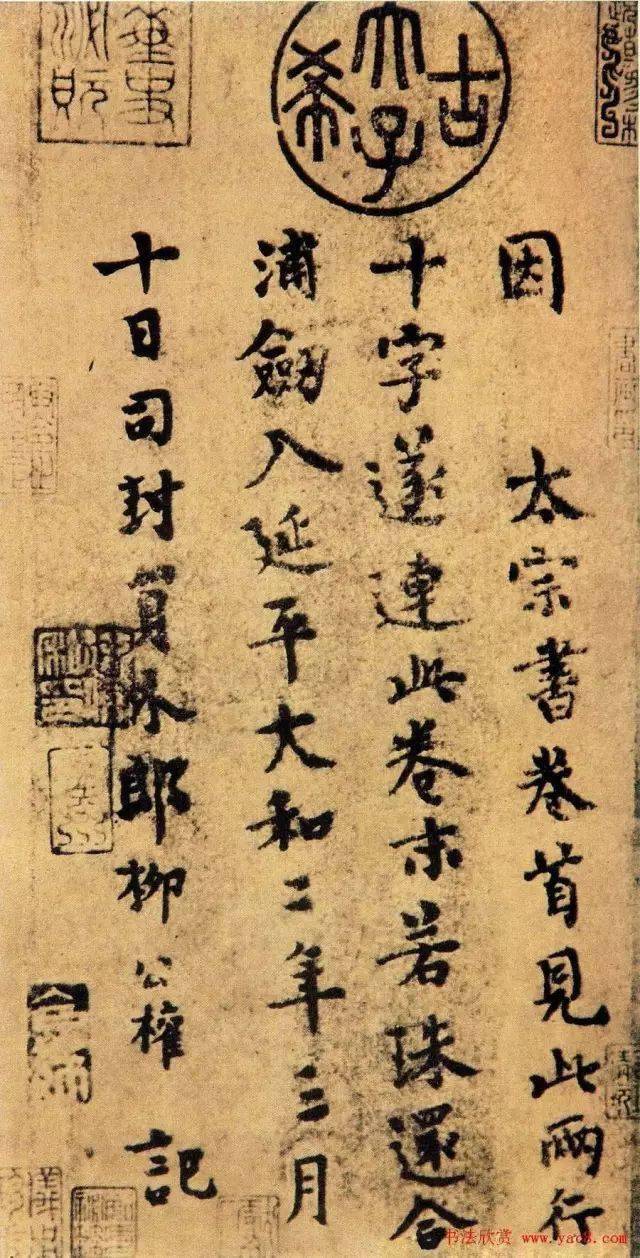 古希天子
因 太宗書卷首見此兩行
十字遂連此卷末若珠還合
浦劒入延平大和二年三月
十日司封員外郎柳公權 記
书法欣赏 www.yac8.com